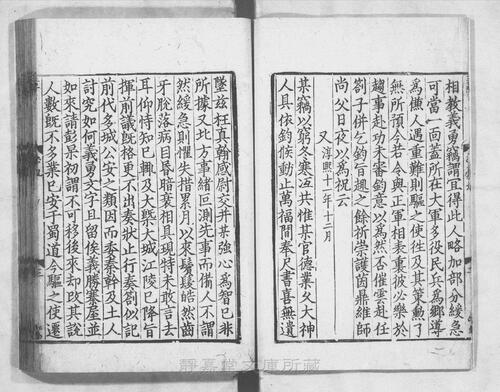 相教義勇竊謂宜得此人略加部分緩急
可當一面蓋所在大軍多役民兵爲鄉導
爲傔人遇重難則驅之使徃及其策勲了
無所預今若令與正軍相表裏彼必樂於
趨事赴功未審鈞意以爲然否催雲赴任
劄子併乞鈞旨趣之餘祈崇護茵鼎維師
尚父日夜以爲祝云
又淳熙十一年十二月
某竊以窮冬寒沍共惟某官德業久大神
人具依鈞候動止萬福間奏尺書喜無遺
墜兹枉眞翰感慰交并某強心爲智已非
所據又北方事緒叵測先事而備人不謂
然緩急則懼失措累月以來鬚髮皓然齒
牙脫落病目昏暗衰相具現特未敢言去
耳仰恃知已輒及大槩大城江陵已降旨
揮前議旣格更不出奏狀止行奏劄似記
前代多城公安之類因而委秦幹及土人
討究如何義勇文字且留俟義勝寨屋並
如來請彭杲初謂不可移後來却改其說
人數旣不多業已安于蜀道今驅之使遷
靜嘉堂文庫所蔵